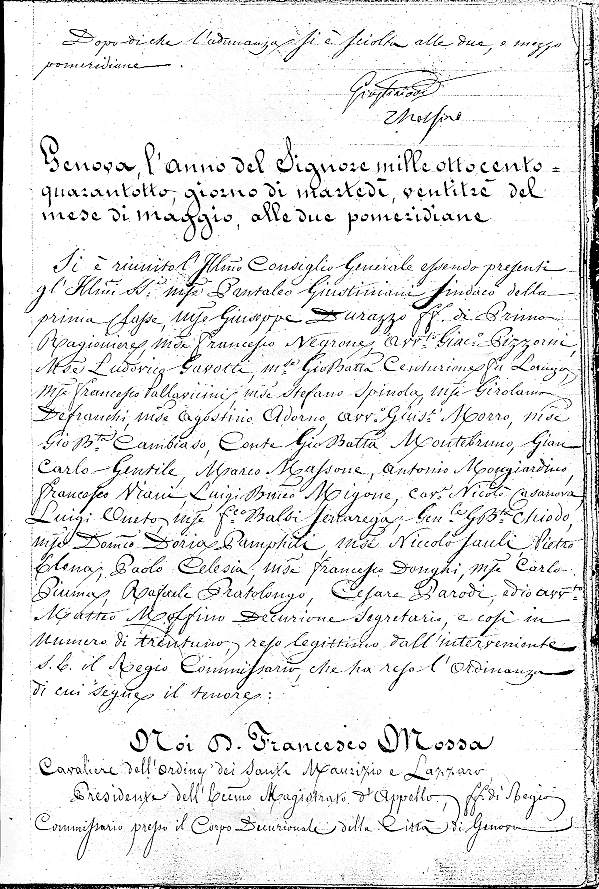 Dopo di che l'adunanza si è sciolta alle due, e mezzo
pomeridiane.
Giustiniani
Molfino
Genova, l'anno del Signore mille ottocento=
quarantotto, giorno di martedì, ventitrè del
mese di maggio, alle due pomeridiane
Si è riunito l'Illmo Consiglio Generale essendo presenti
gl'Illmi SSi mse Pantaleo Giustiniani Sindaco della
prima Classe, mse Giuseppe Durazzo ff. di Primo
Ragioniere, mse Francesco Negrone, avvo Giaco Pizzorni,
Mse Ludovico Gavotti, mse Gio Batta Centurione fu Lorenzo,
mse Francesco Pallavicini, mse Stefano Spinola, mse Girolamo
Defranchi, mse Agostino Adorno, avvo Giuse Morro, mse
Gio Bta Cambiaso, Conte Gio Batta Montebruno, Gian
Carlo Gentile, Marco Massone, Antonio Mongiardino,
Francesco Viani Luigi Migone, cave Nicolò Casanova,
Luigi mse Fco Balbi Senarega, Genle G Bta Chiodo,
mse Domco Doria Pamphili, mse Niccolò Sauli, Pietro
Elena, Paolo Celesia, mse Francesco Donghi, mse Carlo
Rafaele Pratolongo Cesare Parodi, ed io avvto
Matteo Molfino Decurione Segretario, e così in
numero di trentuno, reso legittimo dall'interveniente
S.E. il Regio Commissario, che ha reso l'Ordinanza
di cui segue il tenore:
Noi D. Francesco Mossa
Cavaliere dell'Ordine dei Santi Maurizio e Lazzaro,
Presidente dell'Eccmo Magistrato d'Appello, ff. di Regio
Commissario presso il Corpo Decurionale della Città di Genova